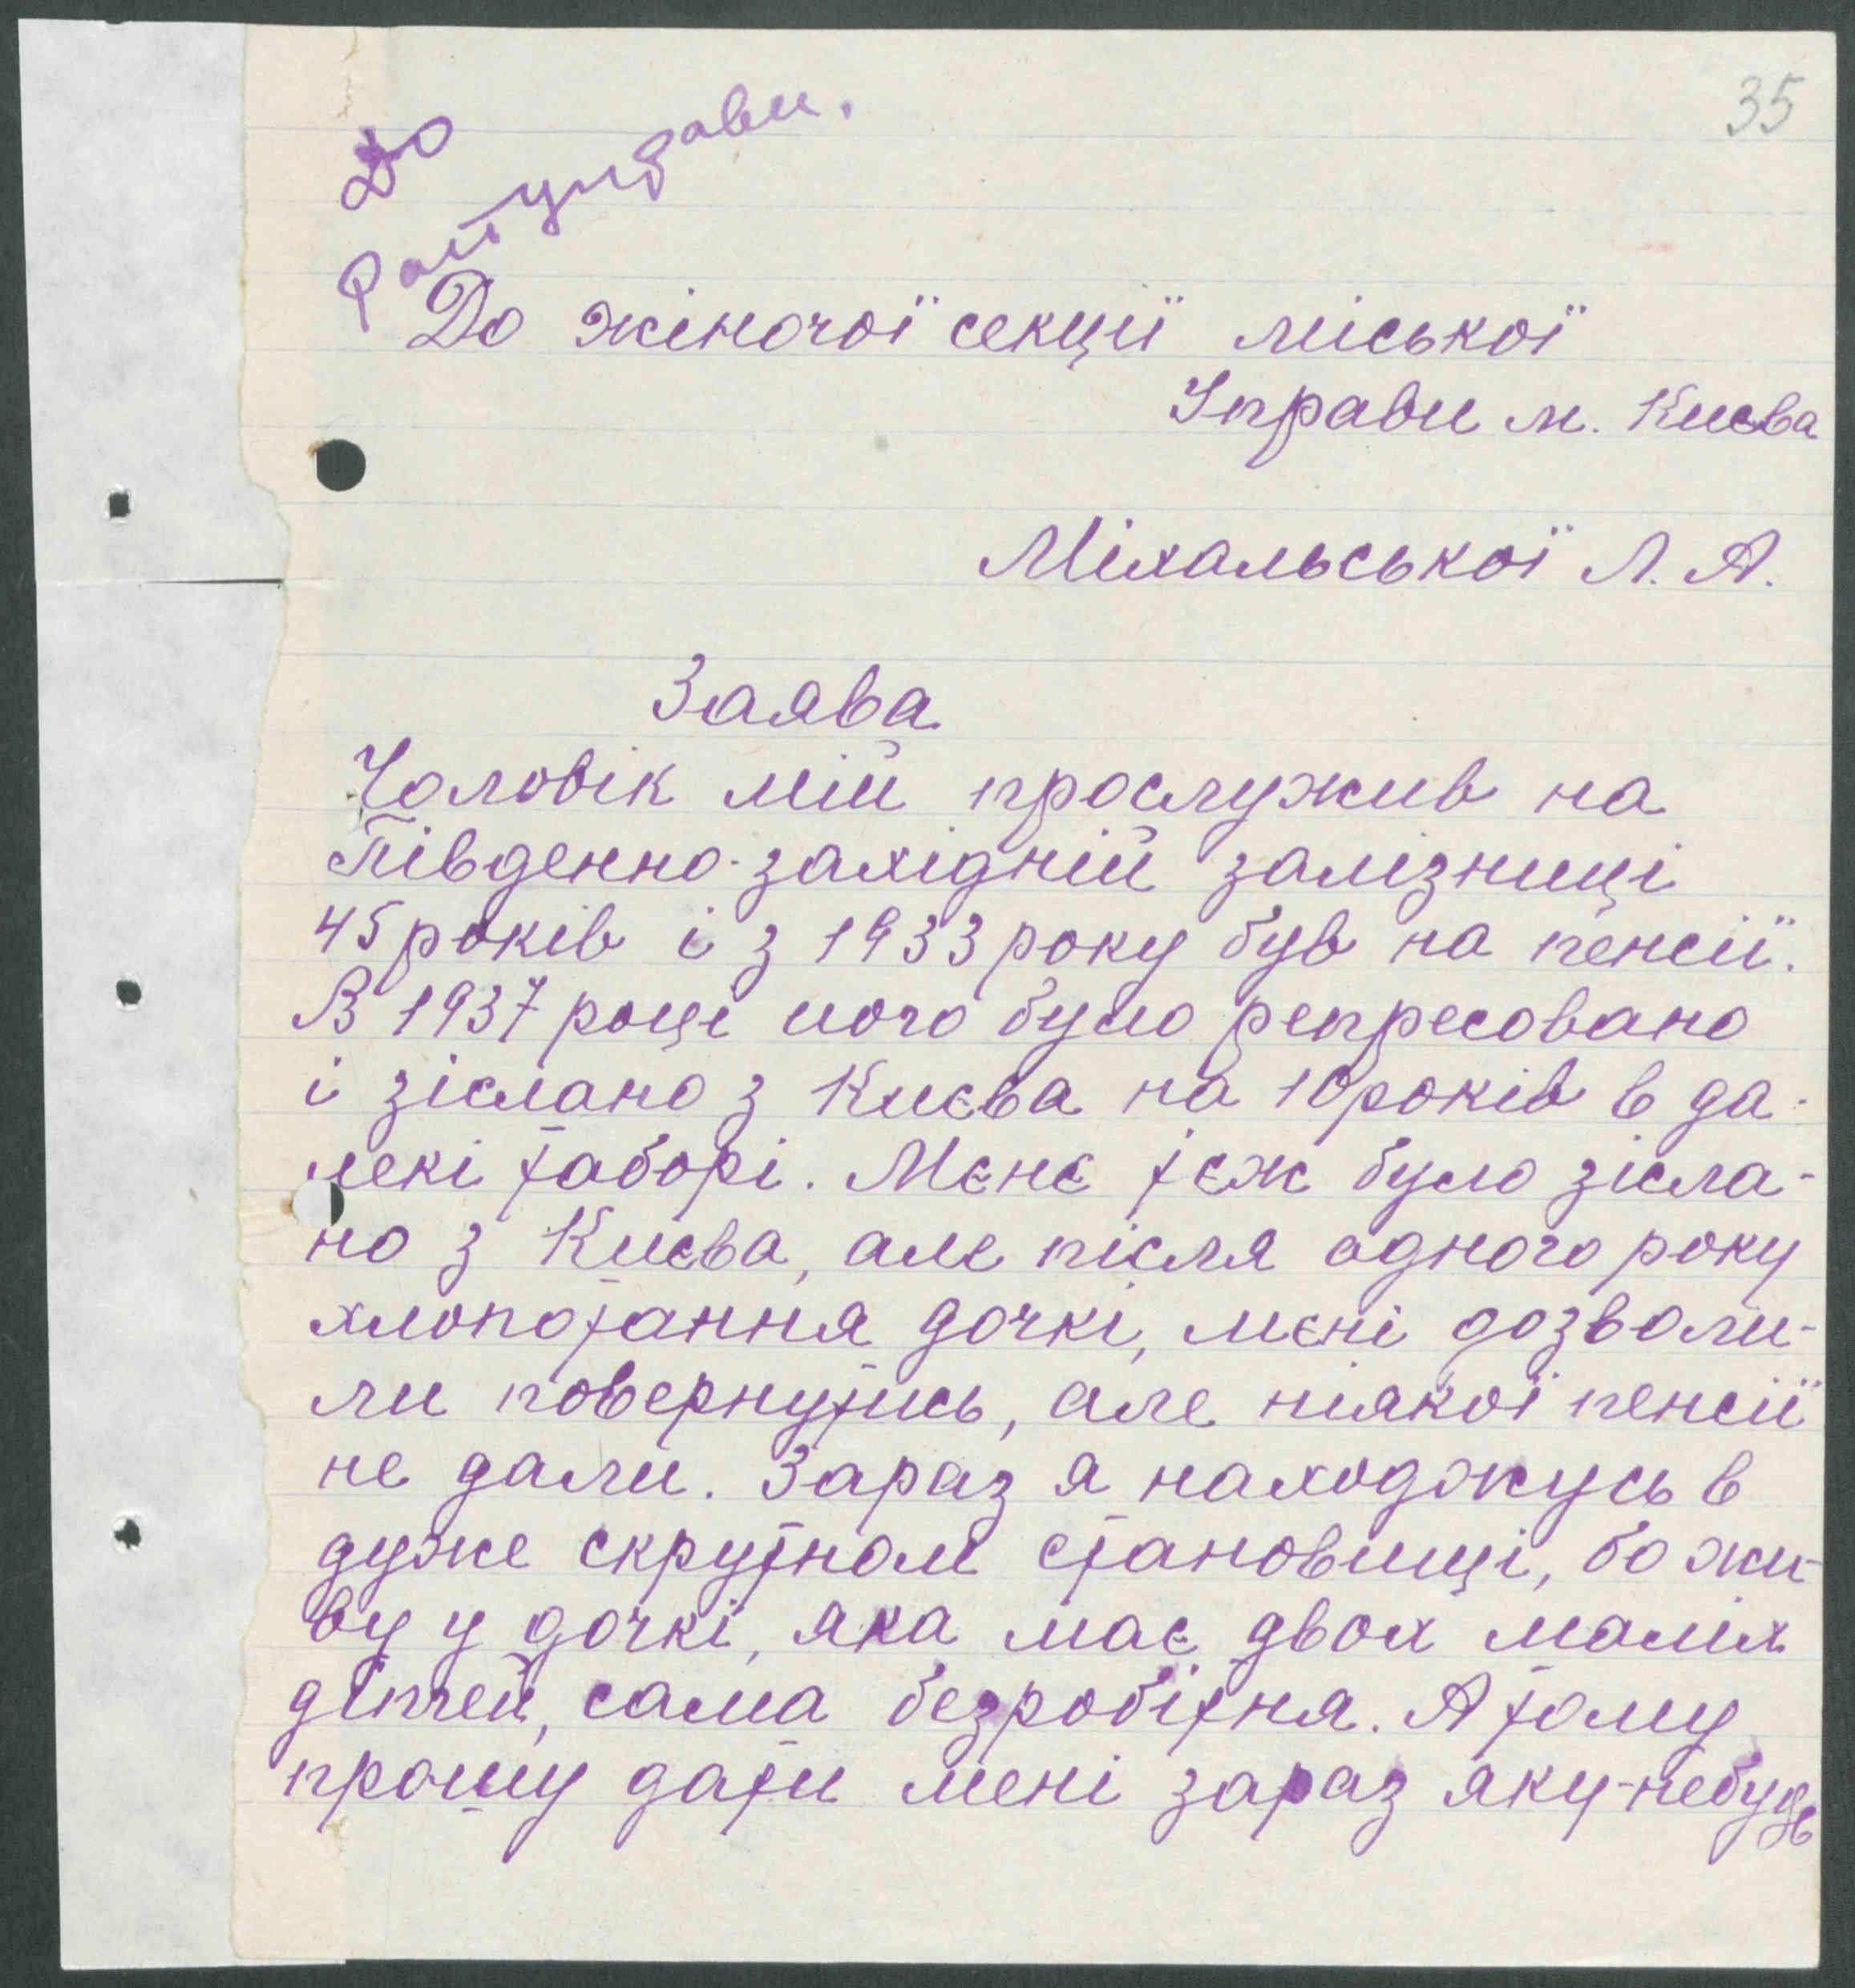 35
До
Рай управи.
До жіночої секції міської
Управи м. Києва
Міхальської Л. А.
Заява
Чоловік мій прослужив на
Південно-західній залізниці
45 років і з 1933 року був на пенсії.
В 1937 році його було репресовано
і зіслано з Києва на 10 років в да-
лекі таборі. Мєнє теж було зісла-
но з Києва, але після одного року
хлопотання дочкі, мєні дозволи-
ли повернутись, але ніякої пенсії
не дали. Зараз я находжусь в
дуже скрутном становищі, бо жи-
ву у дочкі, яка має двох маліх
дітей, сама безробітня. А тому
прошу дати мені зараз яку-небудь